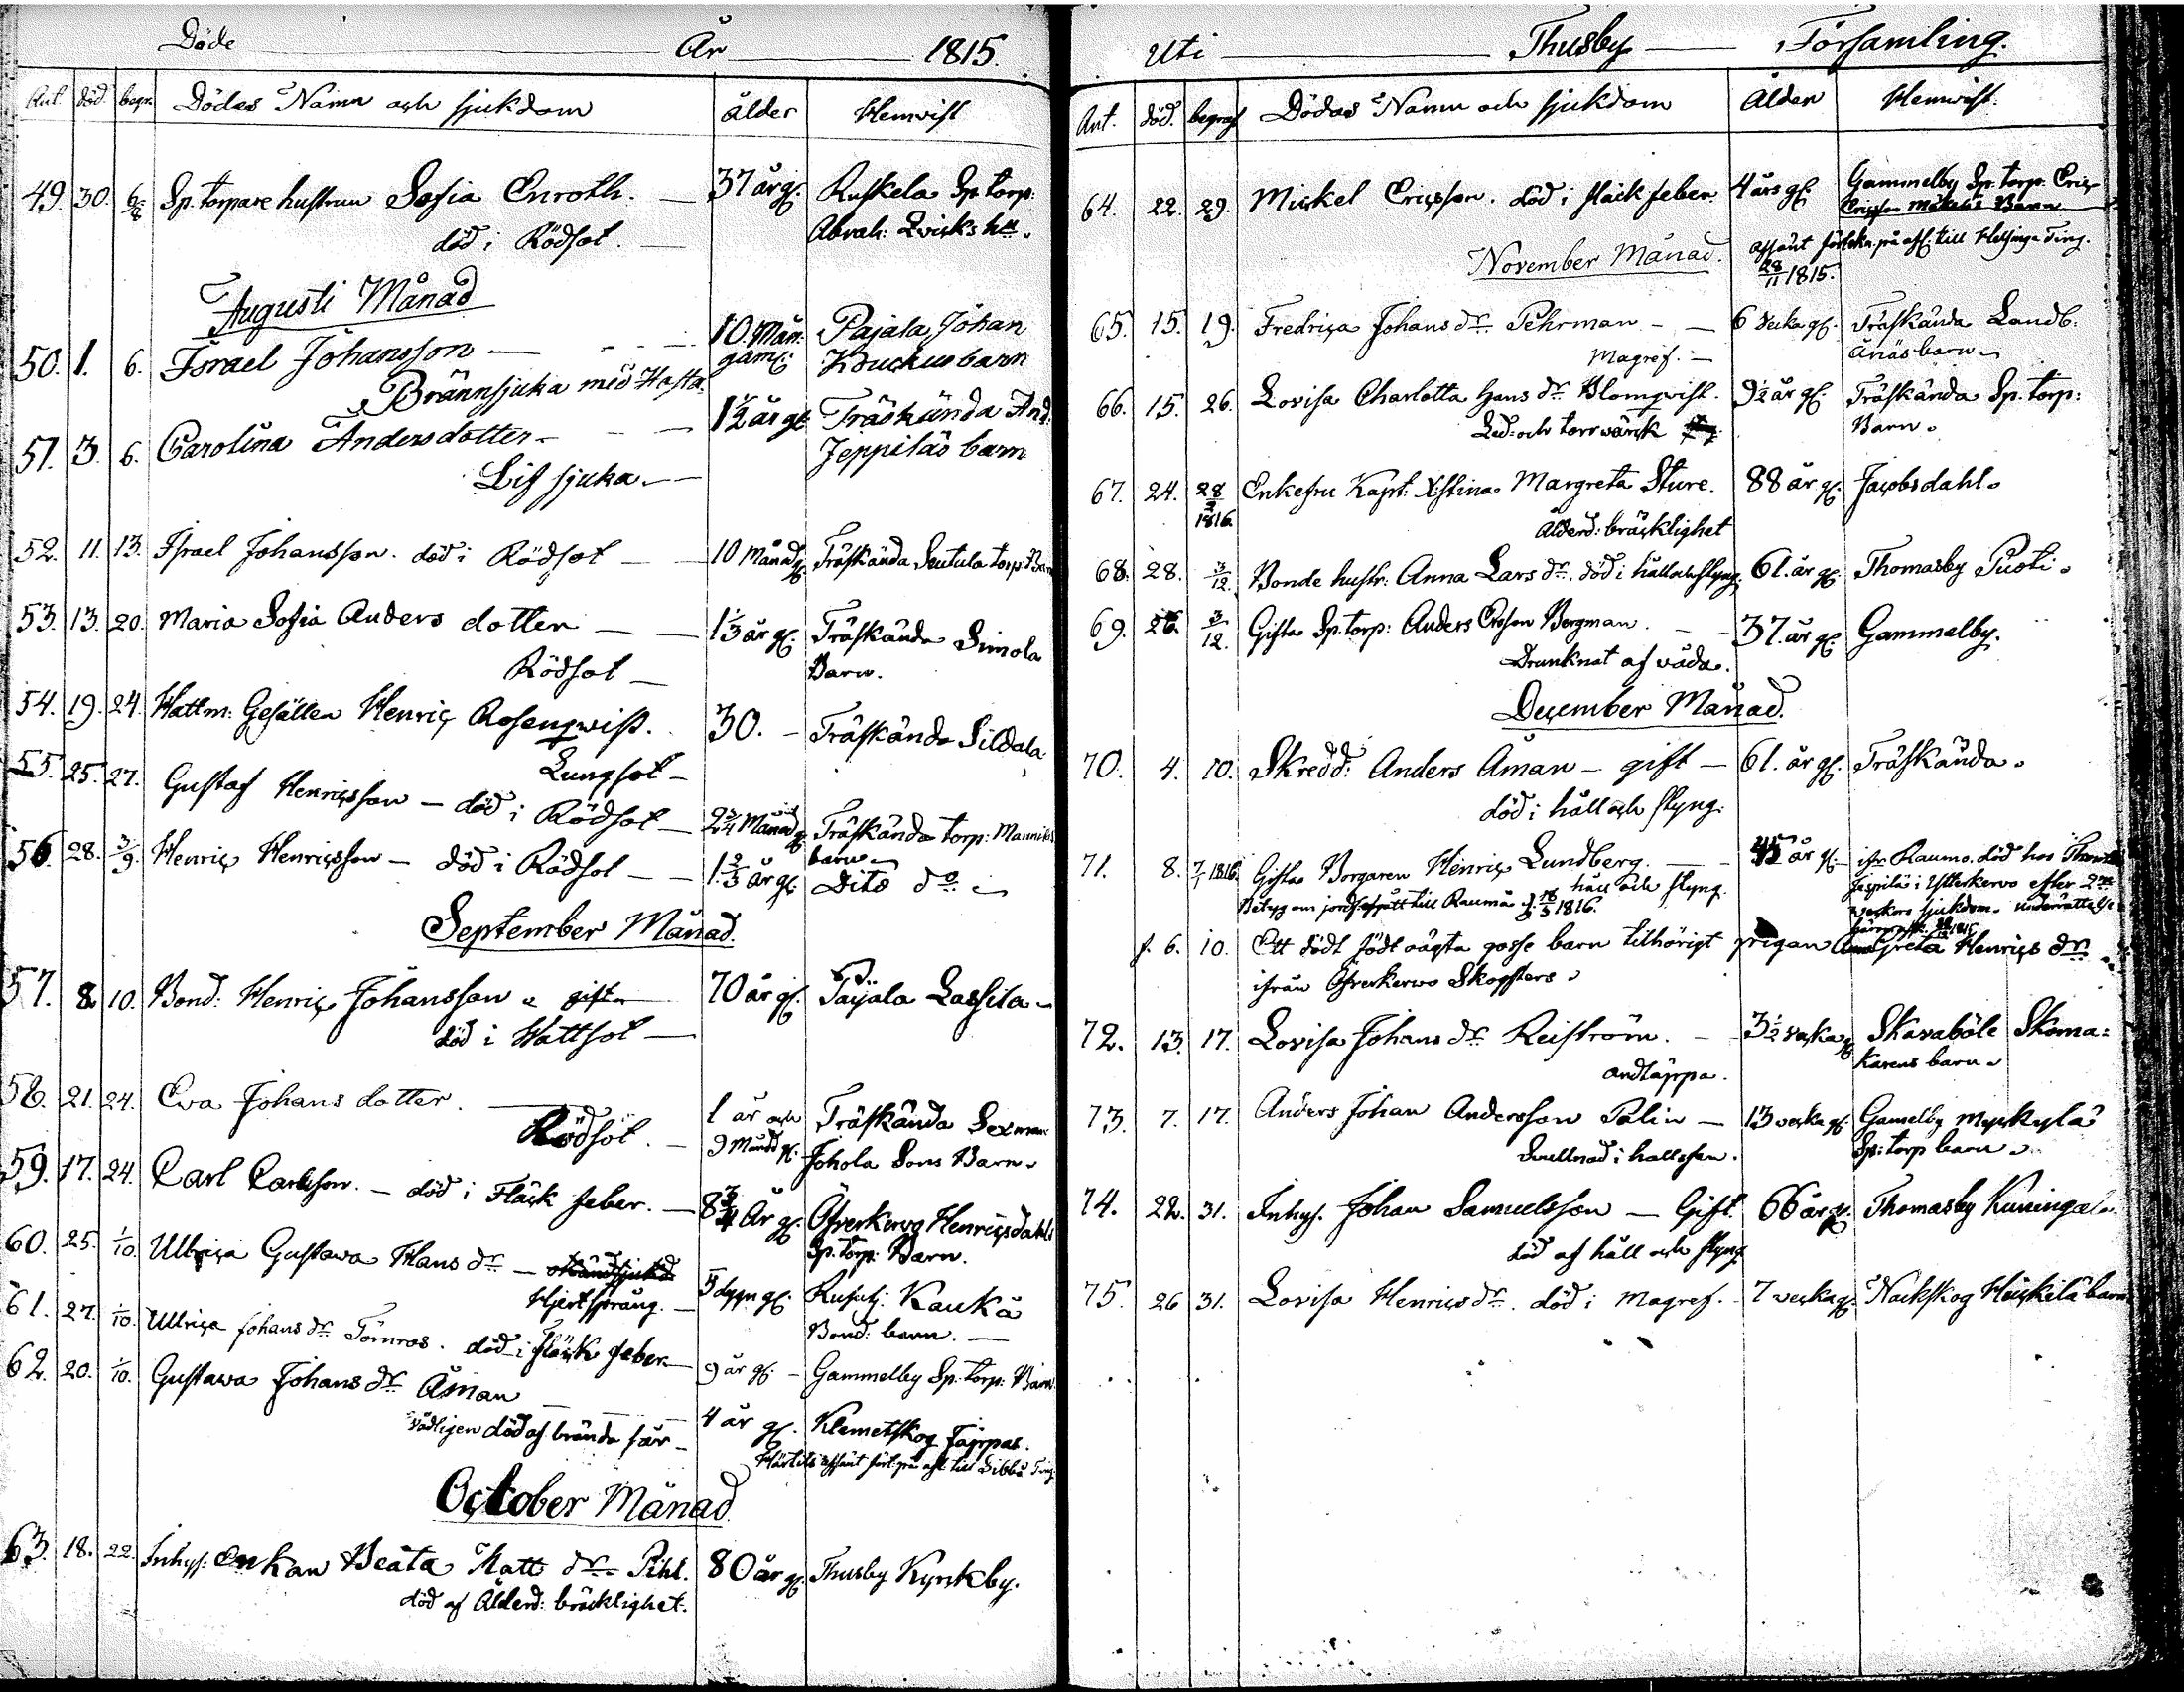 Döde År 1815.
Ant. död. begr. Dödas Namn och sjukdom ålder Hemvist
49. 30. 6/8 Sp. torpare hustrun Sofia Enroth. — 37 år gl. Ruskela Sp. torp:
död i Rödsot. — Abrah: Qvicks hu.
Augusti Månad
50. 1. 6. Israel Johansson — 10. Mån: Pajala Johan
Brännsjuka med Hosta. gaml: Kouckus barn
51. 3. 6. Carolina Andersdotter — 1½ år gl. Träskända And:
Lif sjuka. — Jeppiläs barn
52. 11. 13. Israel Johansson. död i Rödsot — 10 Månad gl. Träskända Seutula torp: Barn
53. 13. 20. Maria Sofia Anders dotter — 1⅓ år gl. Träskända Simola
Rödsot — Barn.
54. 19. 24. Hattm: Gesällen Henric Rosenqwist. 30. — Träskända Sildala
Lungsot —
55. 25. 27. Gustaf Henricsson — död i Rödsot — 2¾ Månad gl. Träskända torp: Mannikas
barn
56. 28. 3/9. Henric Henricsson — död i Rödsot — 1⅔ år gl. Dito do
September Månad.
57. 8. 10. Bond: Henric Johansson gift 70 år gl. Paijala Lassila
död i Wattsot —
58. 21. 24. Eva Johans dotter. 1 år och Träskända Sexman
Rödsot. — 9 Månad gl. Johola Sons Barn
59. 17. 24. Carl Carlsson. — död i Fläck feber. — 8¾ År gl. Öfverkervo Henricsdahls
Sp. torp: Barn.
60. 25. 1/10. Ulrica Gustava Hans dr — 5 dygn gl. Rusutj: Kaukä
Hjertsprång. — Bond: barn. —
61. 27. 1/10. Ulrica Johans dr Törnros. död i fläck feber — 9 år gl. — Gammelby Sp. torp: Barn
62. 20. 1/10. Gustava Johans dr Åman — 4 år gl. Klemetskog Jäppas.
vådligen död af brända sår — till Sibbå Ting.
October Månad
63. 18. 22. Inhys: Enkan Beata Matts dr Pihl. 80 år gl. Thusby Kyrkby.
död af Ålderd: bräcklighet.
Uti Thusby Församling.
Ant. död. begraf Dödas Namn och sjukdom Ålder Hemvist.
64. 22. 29. Mickel Ericsson. död i fläck feber. 4 års gl. Gammelby Sp. torp: Eric
Ericsson Barn
till Helsinge Ting.
November Månad. 28/11 1815.
65. 15. 19. Fredrica Johans dr Pehrman — 6 Vecka gl. Träskända Landb:
Magref. — Änäs barn
66. 15. 26. Lovisa Charlotta Hans dr Blomqvist. 9½ år gl. Träskända Sp. torp:
Led: och torrvärck Barn.
67. 24. 28/2 1816. Enkefru Kapt: Xstina Margreta Sture. 88 år gl. Jacobsdahl.
Ålderd: bräcklighet
68. 28. 3/12. Bonde hustr: Anna Lars dr död i håll och styng. 61. år gl. Thomasby Puoti.
69. 26. 3/12. Gifta Sp. torp: Anders Ersson Bergman. — 37. år gl. Gammelby.
Drunknat af våda.
December Månad.
70. 4. 10. Skredd: Anders Åman — gift — 61. år gl. Träskända.
död i håll och styng.
71. 8. 7/1 1816. Gifta Borgaren Henric Lundberg. — 45 år gl. — ifr. Raumo. död hos
håll och styng. Jeppilä i Ytterkervo efter 2ne
Betyg om till Raumå 16/3 1816. veckors sjukdom. underrättelse
f. 6. 10. Ett dödt födt oägta gosse barn tilhörigt pigan Greta Henrics dr
ifrån Öfverkervo Skogsters
72. 13. 17. Lovisa Johans dr Reiström. — 3½ vecka gl. Skavaböle Skoma=
andtäppa. karens barn
73. 7. 17. Anders Johan Andersson Palin — 13 vecka gl. Gamelby Myckylä
Svullnad i hallsen. Sp: torp barn
74. 22. 31. Inhys. Johan Samuelsson — Gift. 66 år gl. Thomasby Kuningala.
död af håll och styng.
75. 26 31. Lovisa Henrics dr. död i Magref. — 7 vecka gl. Nackskog Heickilä barn